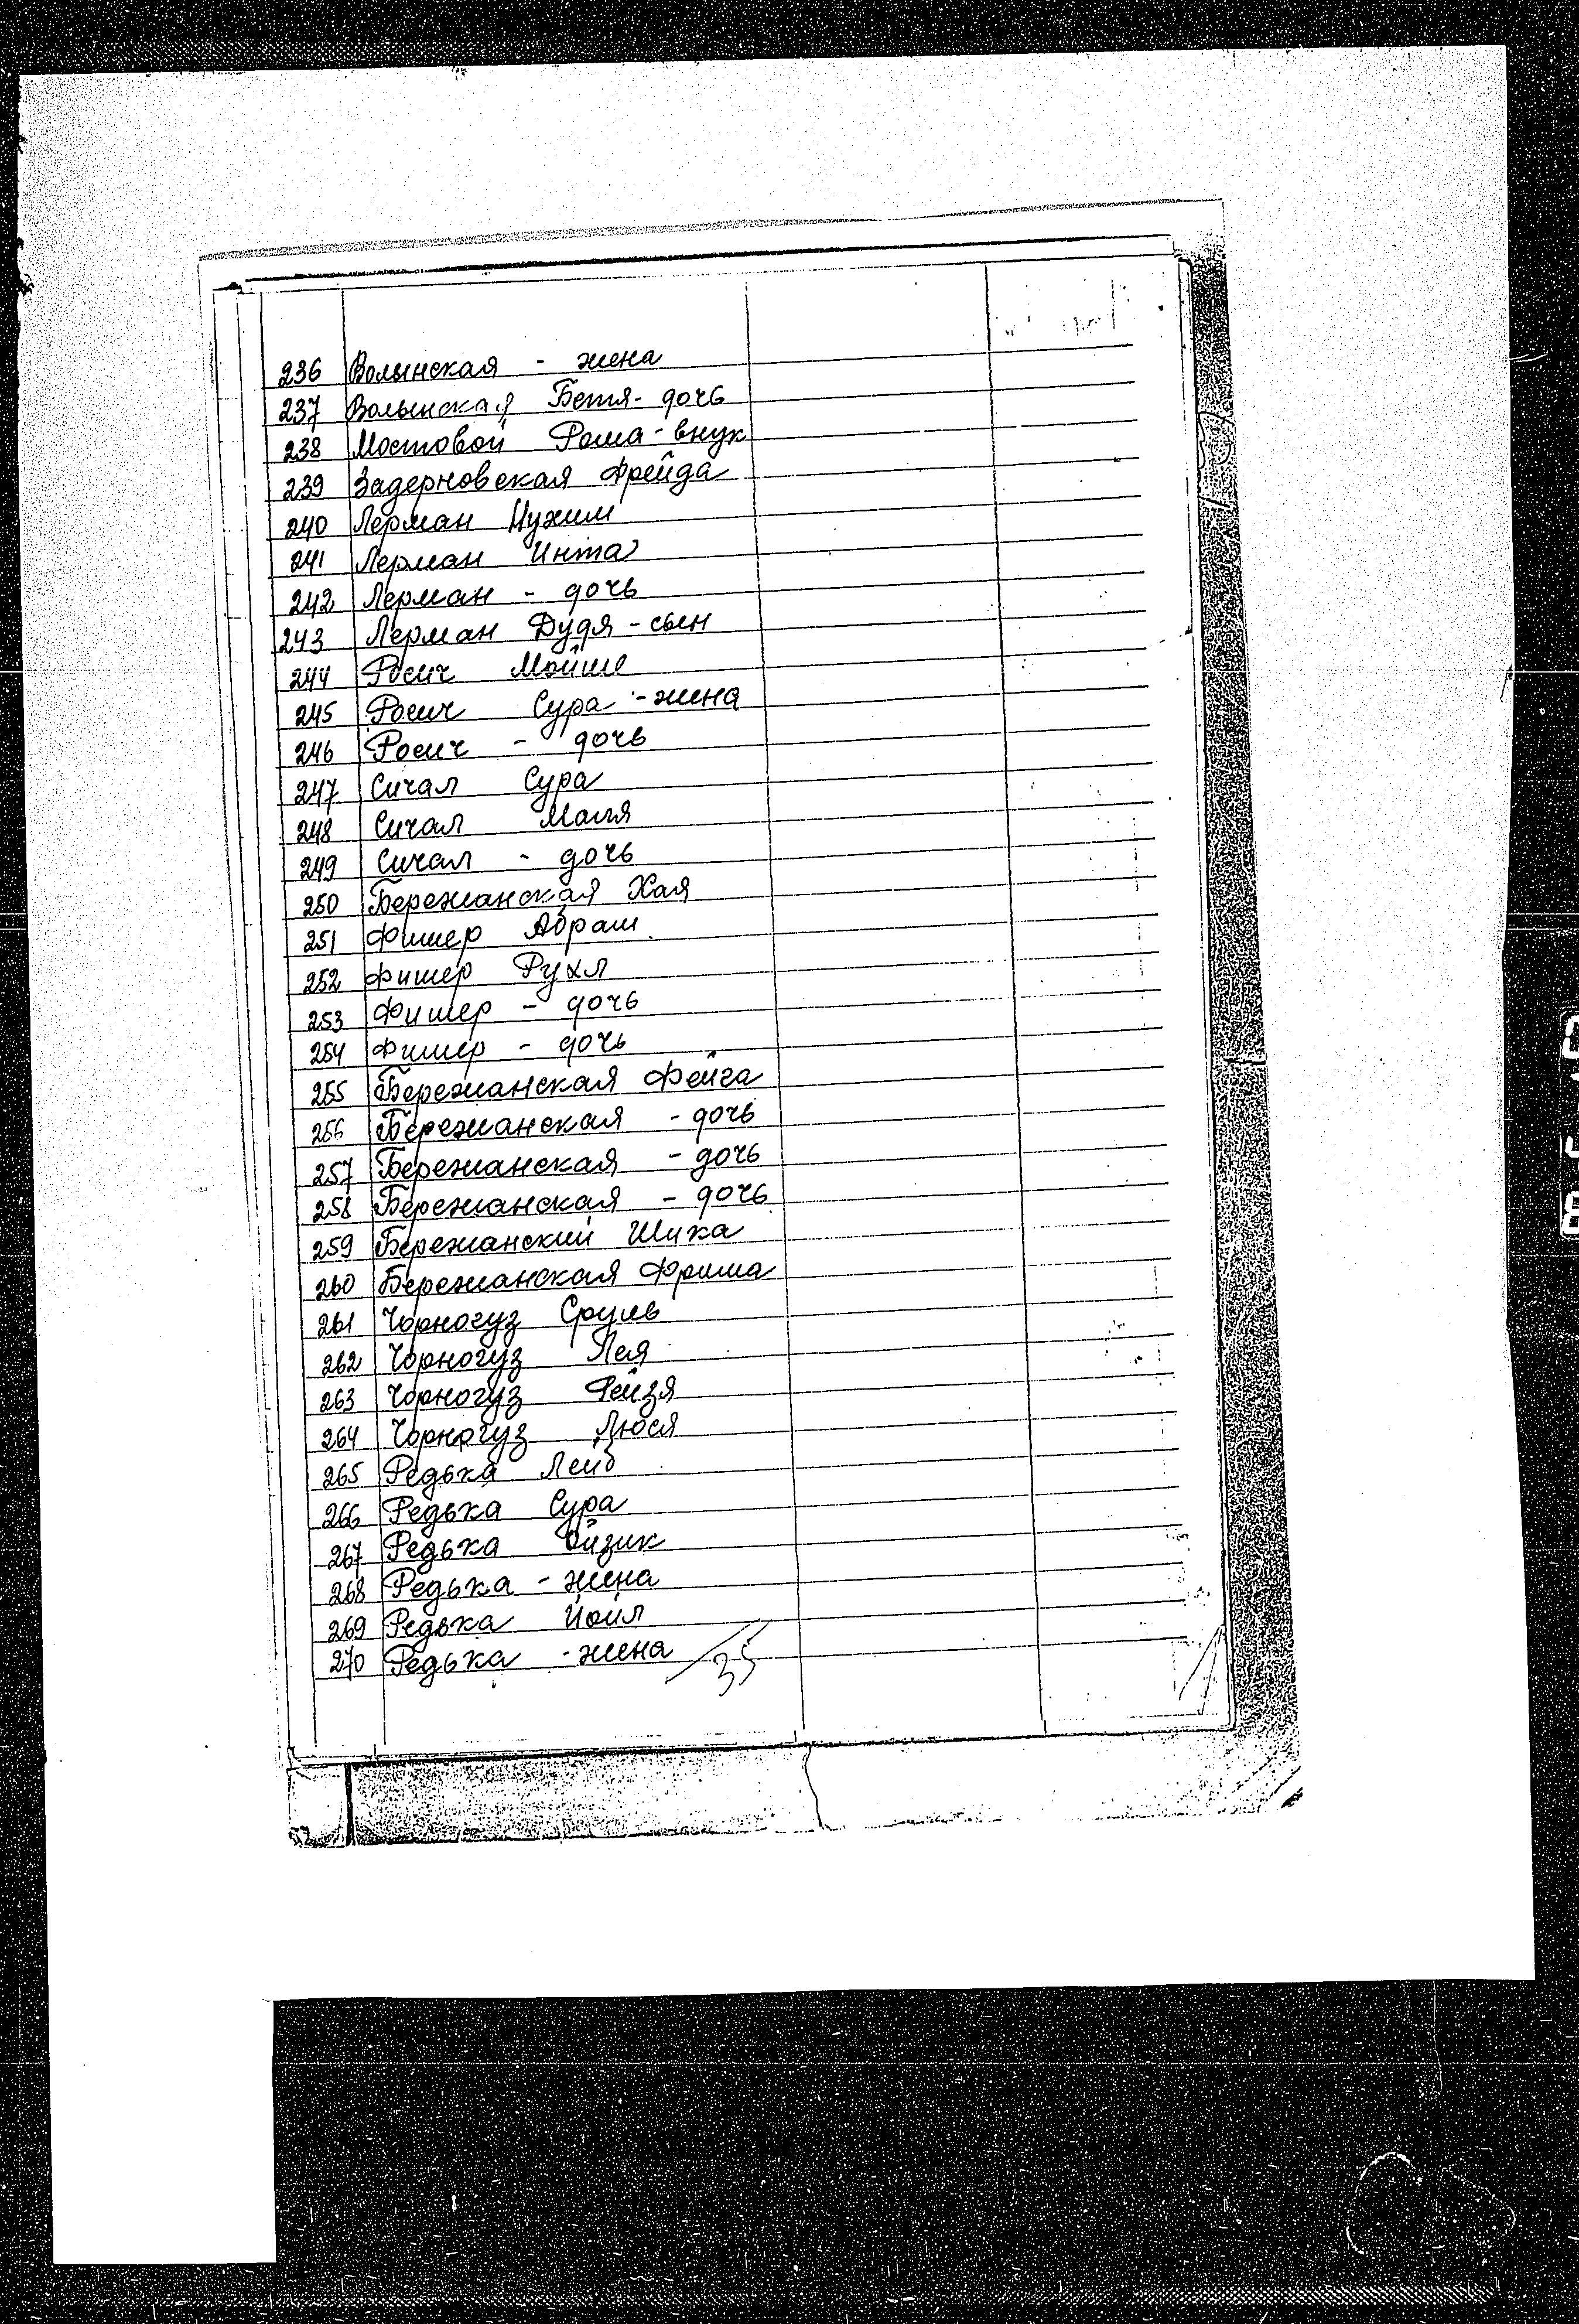 236 Волынская - жена
237 Волынская Бетя - дочь
238 Мостовой Рома - внук
239 Задерновская Фрейда
240 Лерман Нухим
241 Лерман Инта
242 Лерман - дочь
243 Лерман Дудя - сын
244 Росич Мойше
245 Росич Сура - жена
246 Росич - дочь
247 Сичал Сура
248 Сичал Маля
249 Сичал - дочь
250 Бережанская Хая
251 Фишер Абрам
252 Фишер Рухл
253 Фишер - дочь
254 Фишер - дочь
255 Бережанская Фейга
256 Бережанская - дочь
257 Бережанская - дочь
258 Бережанская - дочь
259 Бережанский Шика
260 Бережанская Фрима
261 Чорногуз Сруль
262 Чорногуз Лея
263 Чорногуз Рейзя
264 Чорногуз Люся
265 Редька Лейб
266 Редька Сура
267 Редька Ойзик
268 Редька - жена
269 Редька Йойл
270 Редька - жена
35